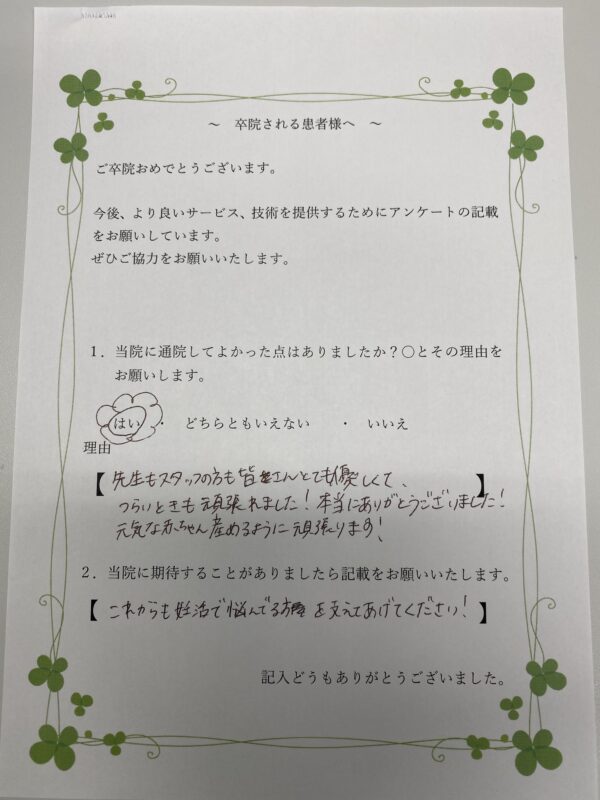 ～　卒院される患者様へ　～
ご卒院おめでとうございます。
今後、より良いサービス、技術を提供するためにアンケートの記載
をお願いしています。
ぜひご協力をお願いいたします。
１．当院に通院してよかった点はありましたか？〇とその理由を
お願いします。
はい　・　どちらともいえない　・　いいえ
理由
【先生もスタッフの方も皆さんとても優しくて、】
つらいときも頑張れました！本当にありがとうございました！
元気な赤ちゃん産めるように頑張ります！
２．当院に期待することがありましたら記載をお願いいたします。
【これからも妊活で悩んでる方を支えてあげてください！】
記入どうもありがとうございました。